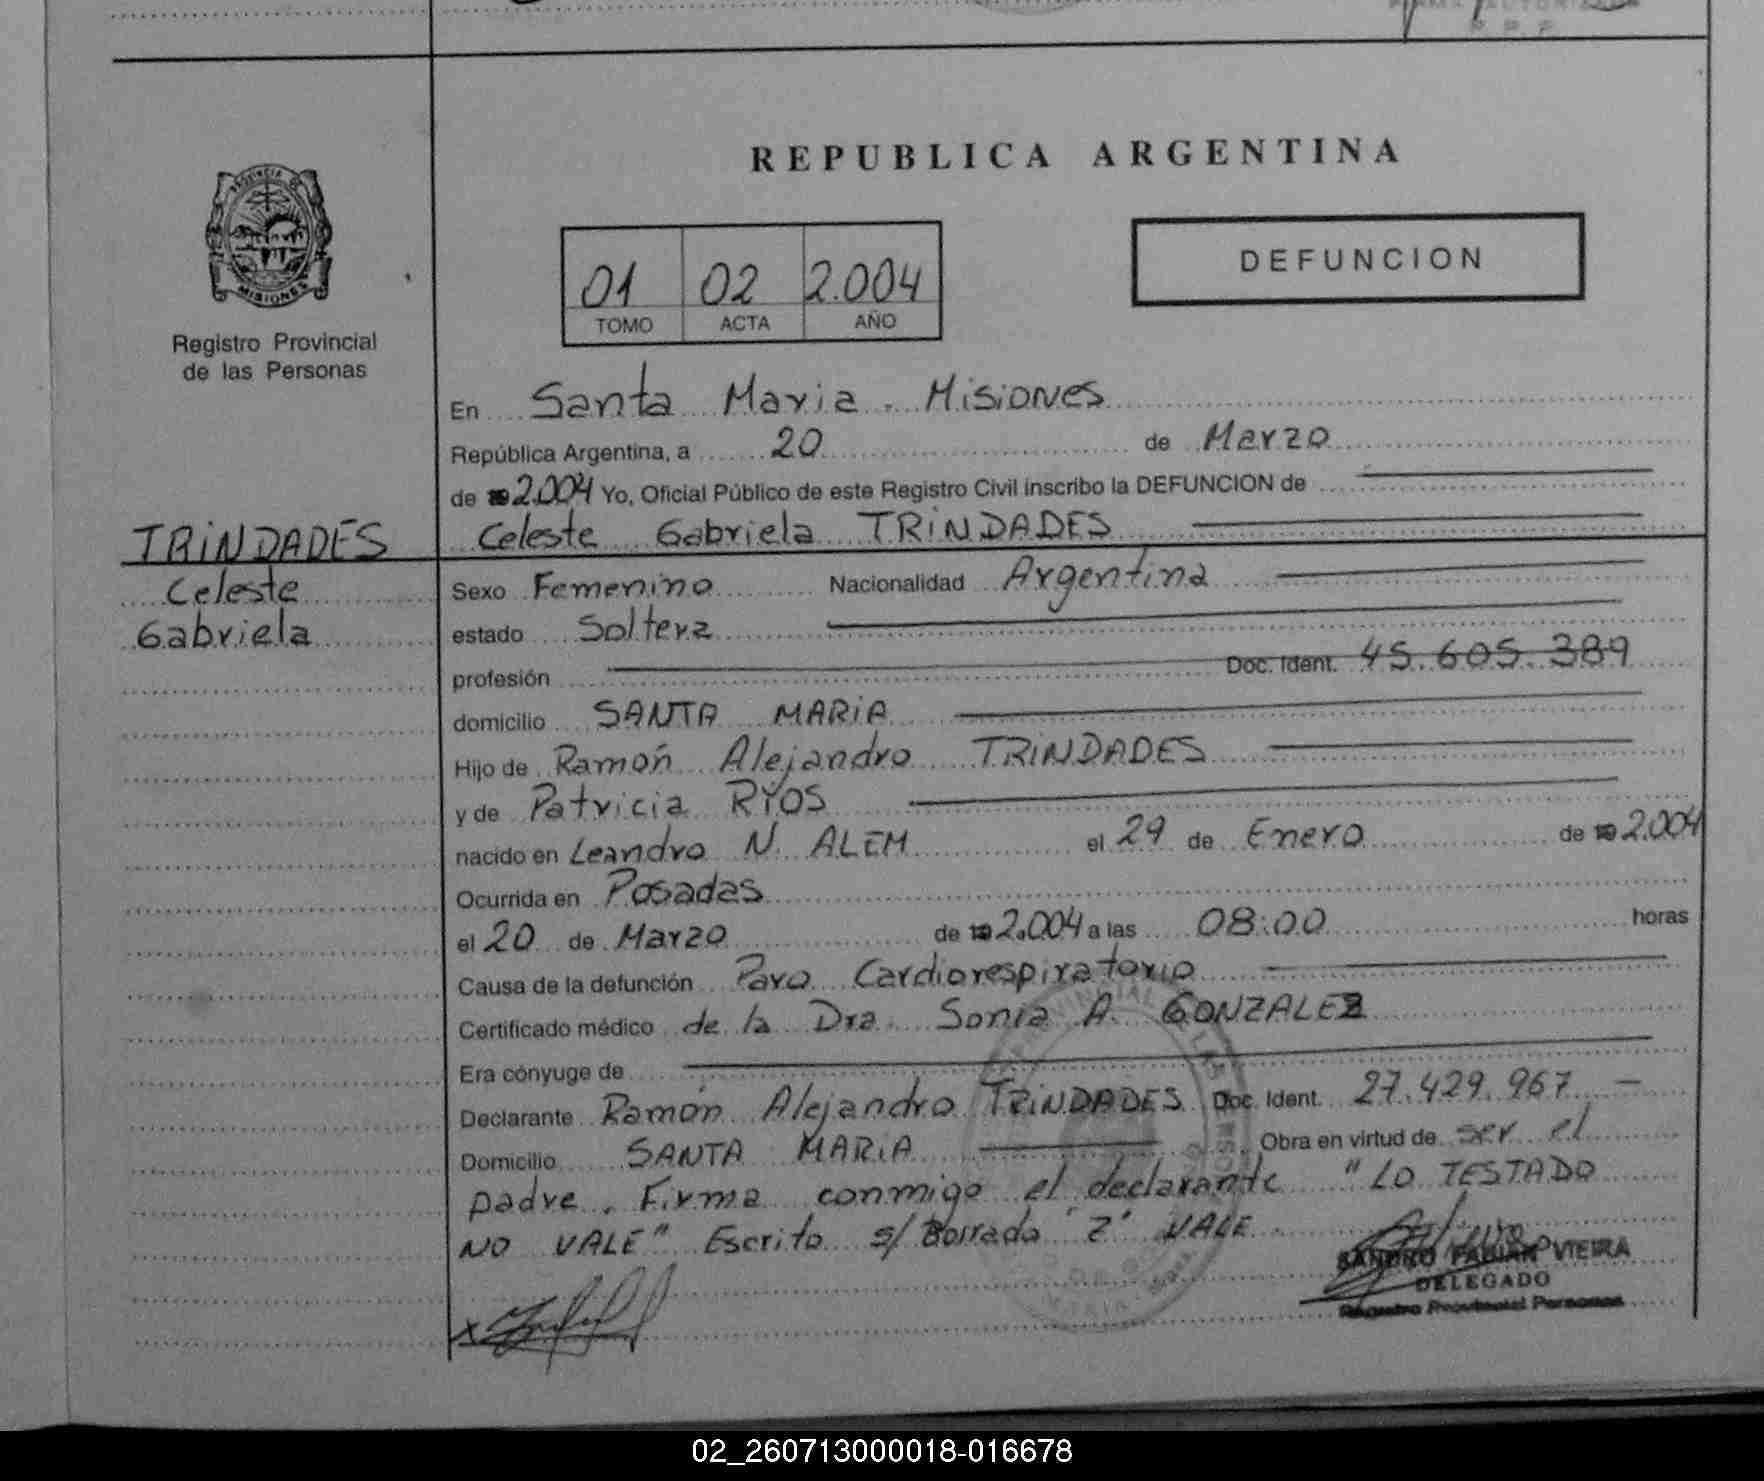 REPUBLICA ARGENTINA
PROVINCIA DE
MISIONES
Registro Provincial
de las Personas
01 02 2.004
TOMO ACTA AÑO
DEFUNCION
En Santa Maria. Misiones
República Argentina, a 20 de Marzo
de 2.004 Yo, Oficial Público de este Registro Civil inscribo la DEFUNCION de
Celeste Gabriela TRiNDADES
TRiNDADES
Celeste
Gabriela
Sexo Femenino Nacionalidad Argentina
estado Soltera
profesión Doc. Ident. 45.605.389
domicilio SANTA MARiA
Hijo de Ramón Alejandro TRiNDADES
y de Patricia RYOS
nacido en Leandro N. ALEM el 29 de Enero de 2.004
Ocurrida en Posadas
el 20 de Marzo de 2.004 a las 08:00 horas
Causa de la defunción Paro Cardiorespiratorio
Certificado médico de la Dra. Sonia A. GONZALEZ
Era cónyuge de
Declarante Ramón Alejandro TRiNDADES Doc. Ident. 27.429.967 —
Domicilio SANTA MARiA Obra en virtud de ser el
padre. Firma conmigo el declarante "LO TESTADO
NO VALE" Escrito s/ Borrado "Z" VALE
SANDRO FABIAN VIEIRA
DELEGADO
Registro Provincial Personas
02_260713000018-016678